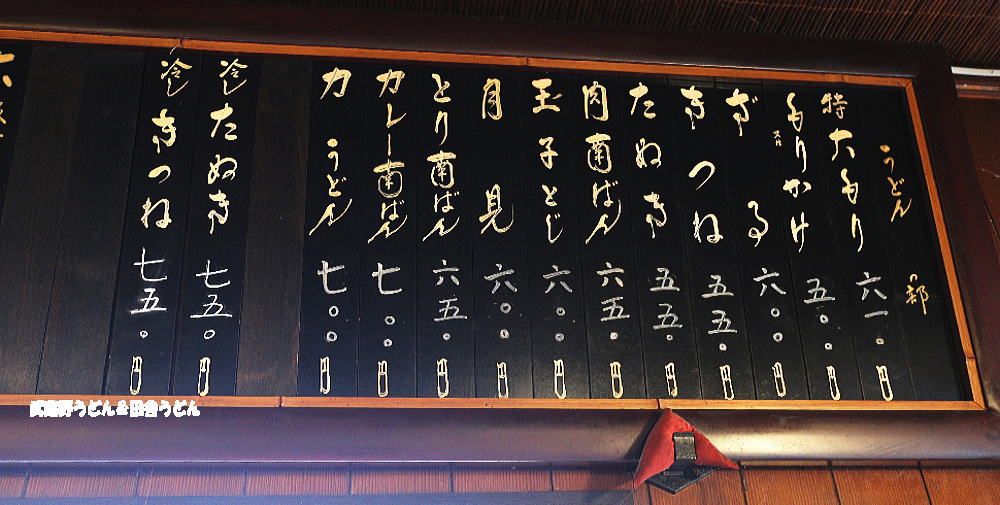 うどんの部
特大もり 六一〇円
もりかけ 五〇〇円
ざる 六〇〇円
きつね 五五〇円
たぬき 五五〇円
肉南ばん 六五〇円
玉子とじ 六〇〇円
月見 六〇〇円
とり南ばん 六五〇円
カレー南ばん 七〇〇円
力うどん 七〇〇円
冷したぬき 七五〇円
冷しきつね 七五〇円
武蔵野うどん&田舎うどん